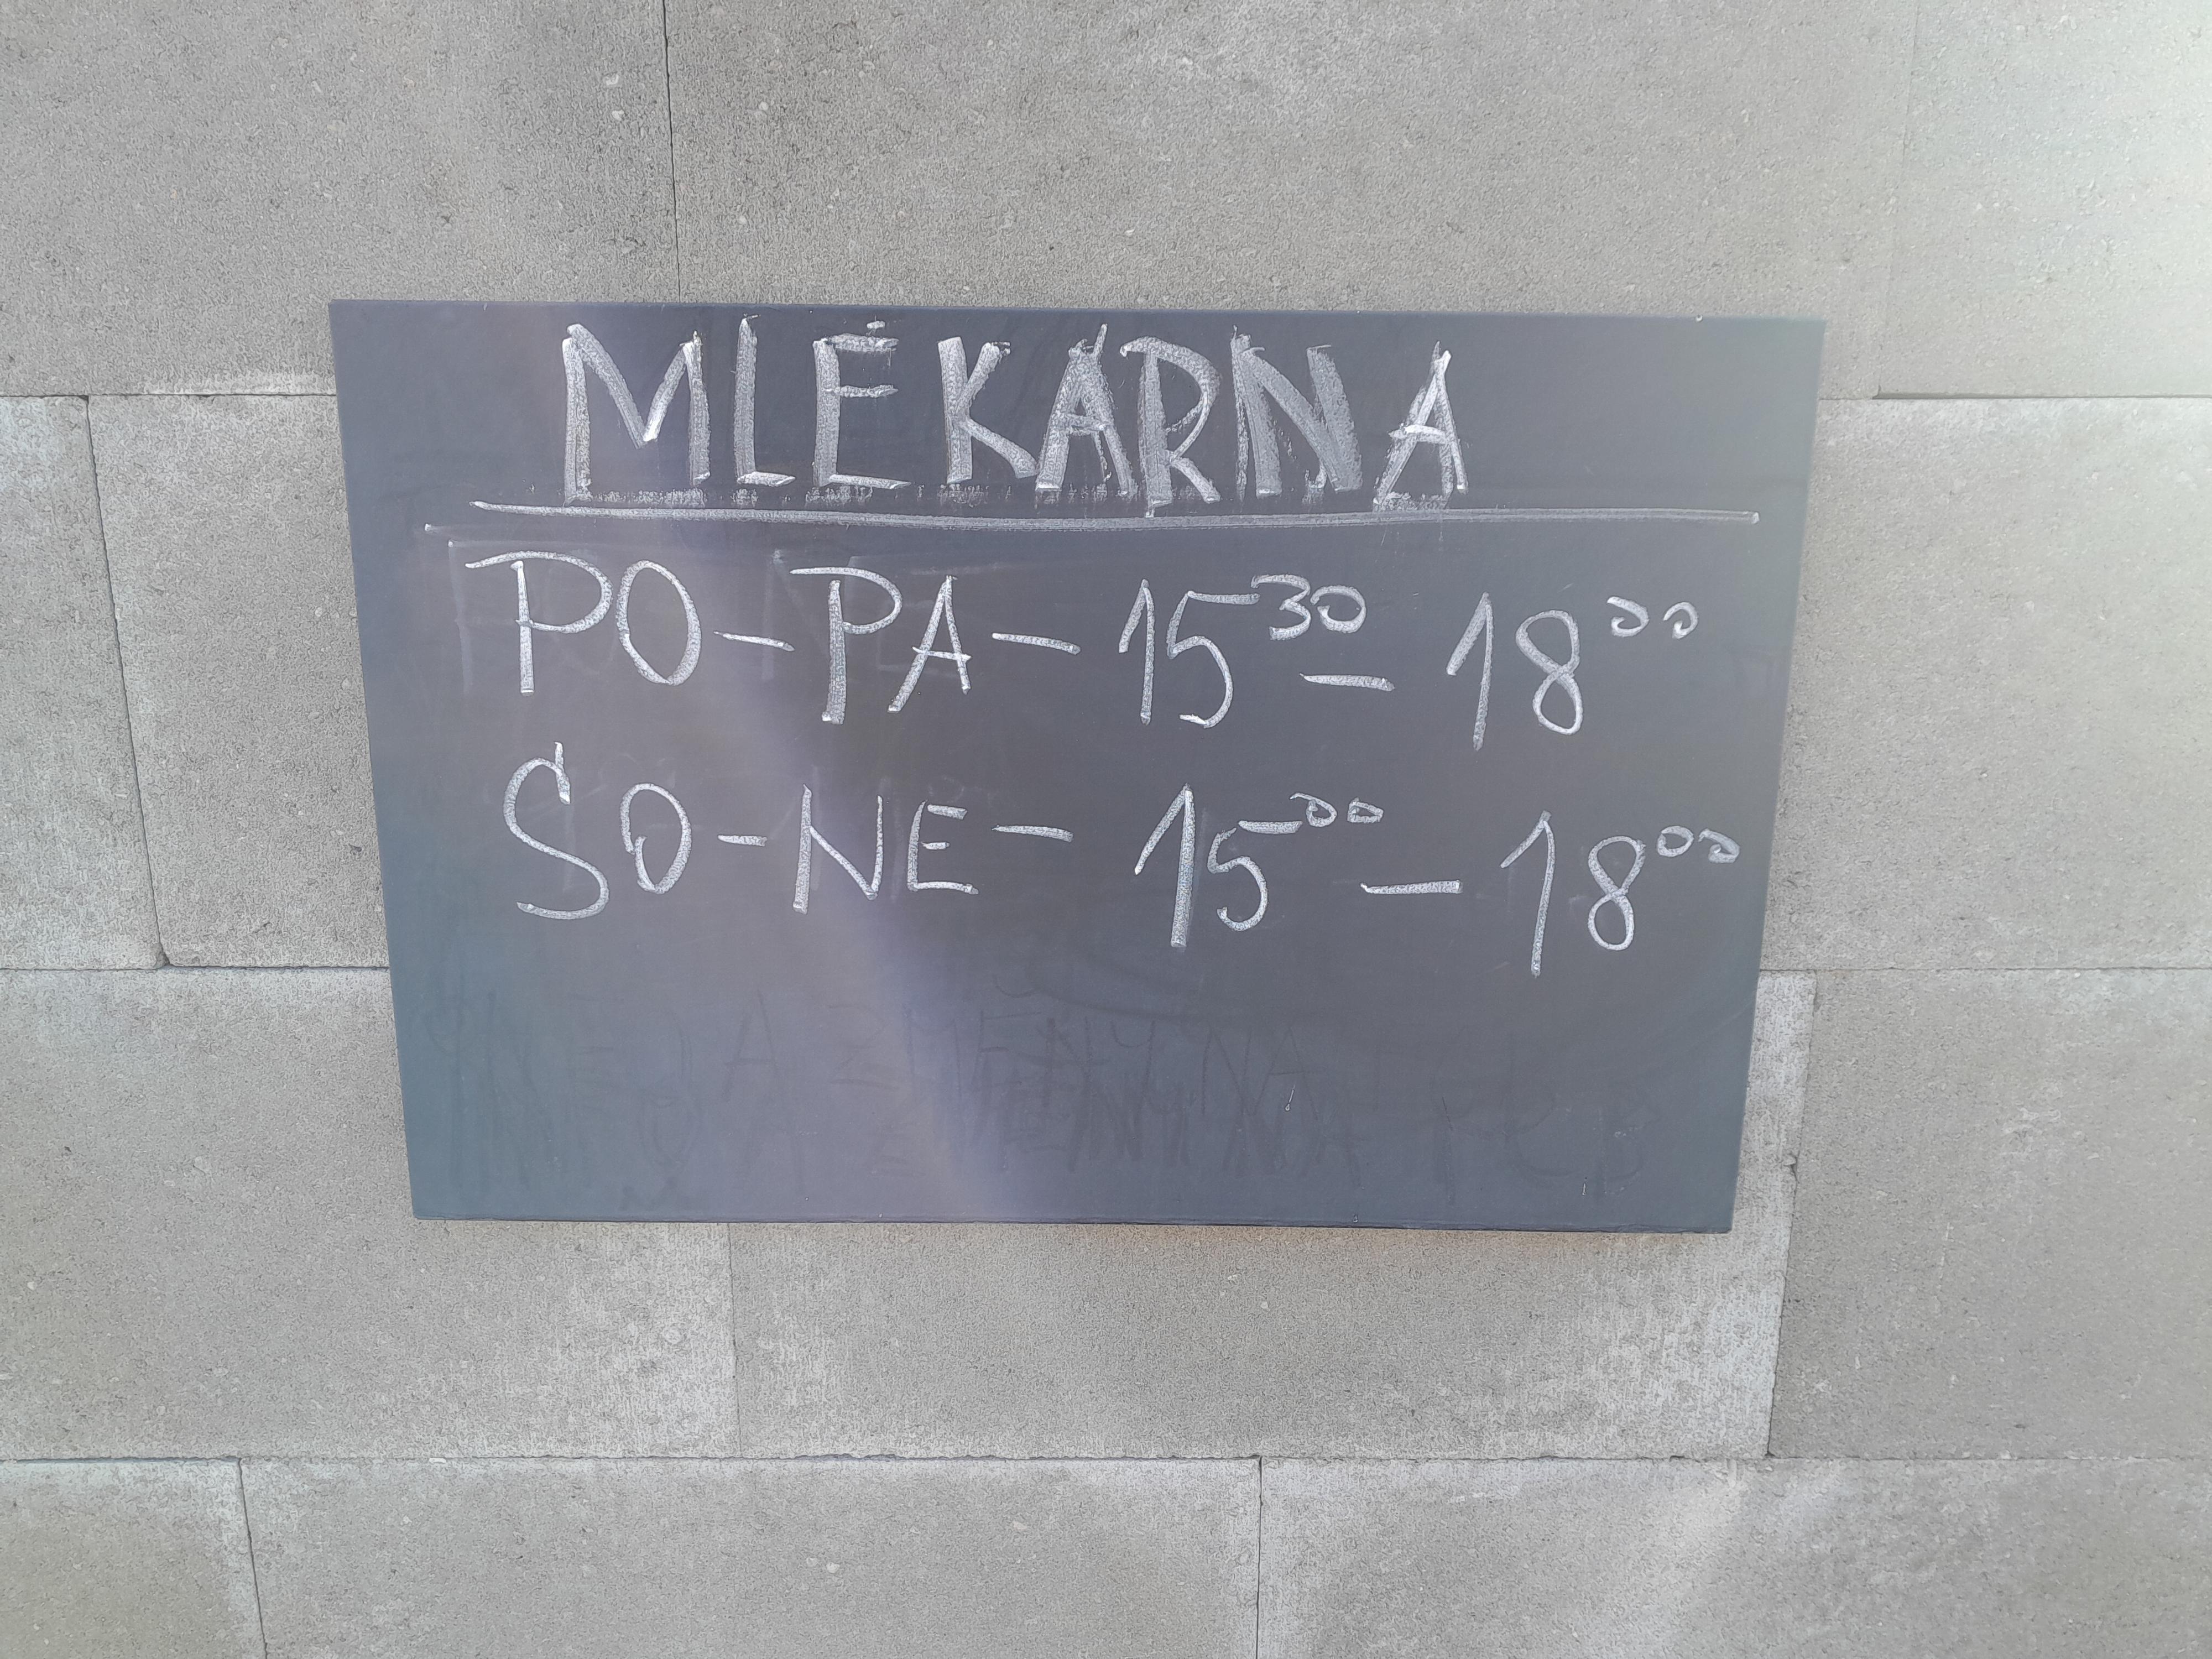 MLÉKÁRNA
PO-PA-15³⁰-18⁰⁰
SO-NE-15⁰⁰-18⁰⁰